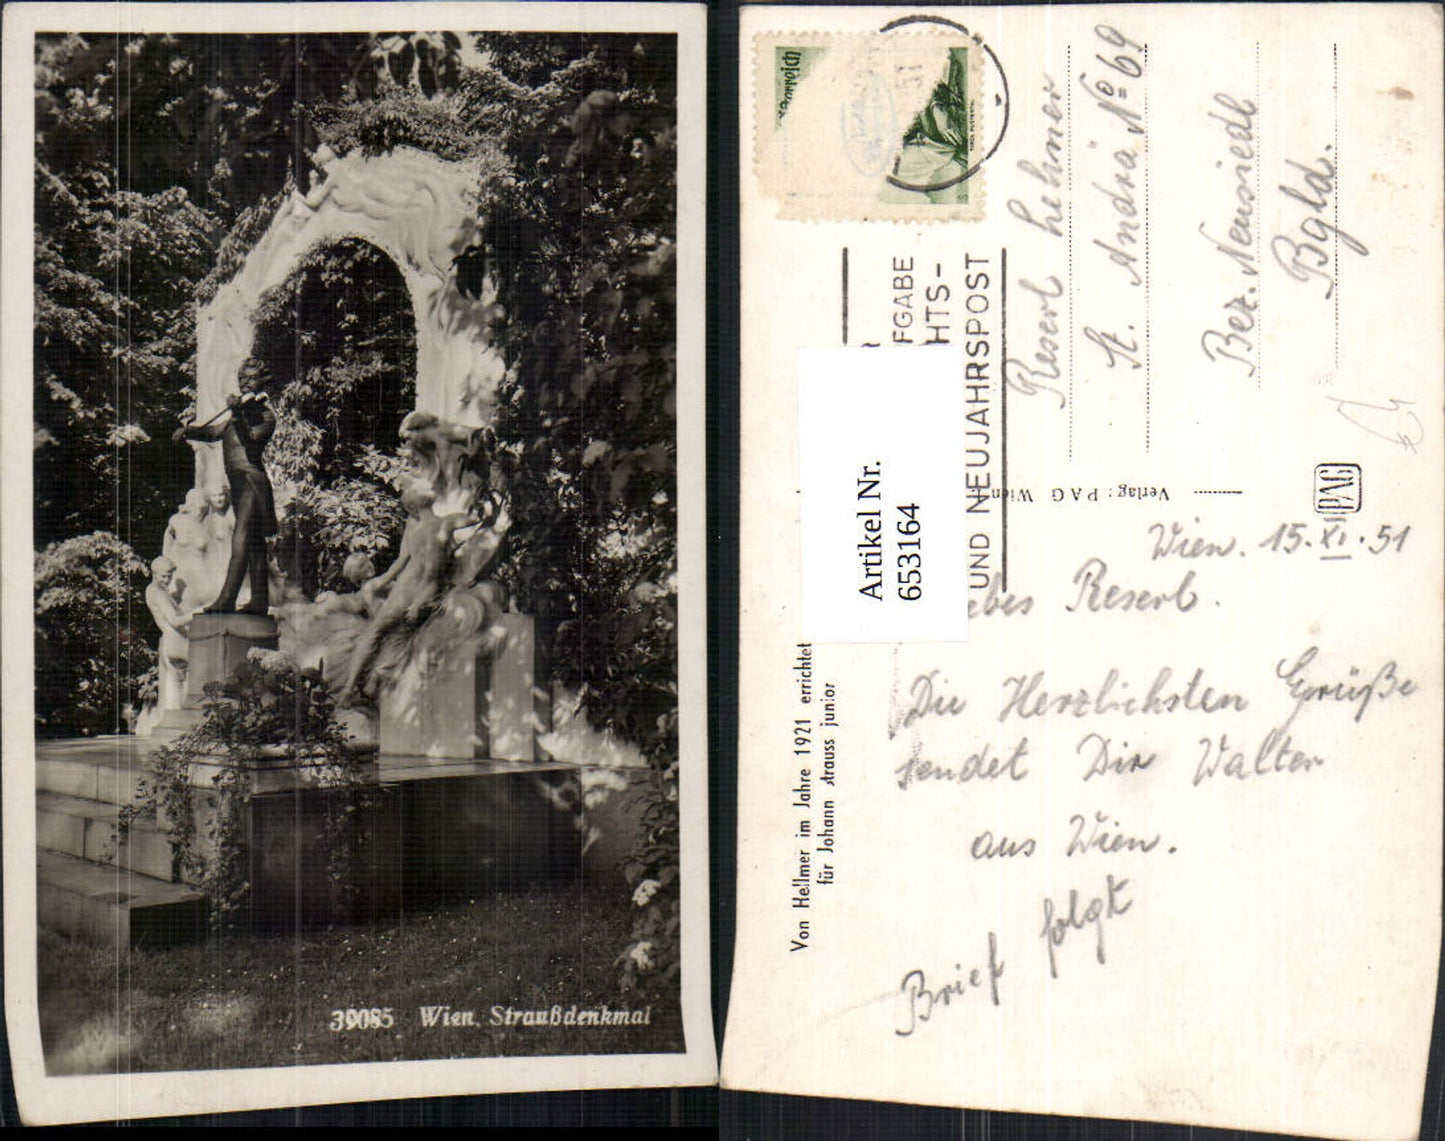 39085 Wien. Straußdenkmal
Österreich
51
FGABE
HTS-
UND NEUJAHRSPOST
Reserl Lehner
St. Andrä No 69
Bez. Neusiedl
Bgld.
Artikel Nr.
653164
Verlag: PAG Wien
PAG
Wien. 15. XI. 51
ebes Reserl.
Die Herzlichsten Grüße
sendet Dir Walter
aus Wien.
Brief folgt
Von Hellmer im Jahre 1921 errichtet
für Johann Strauss junior